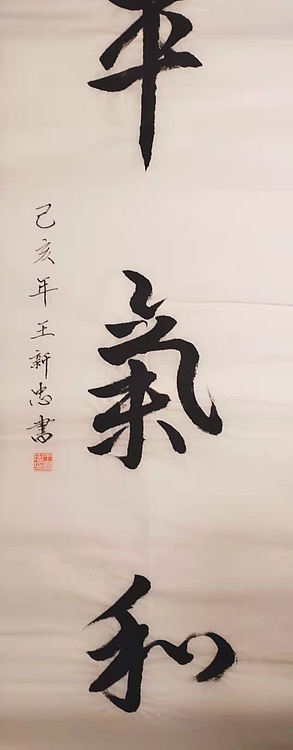 平氣和
己亥年王新忠書